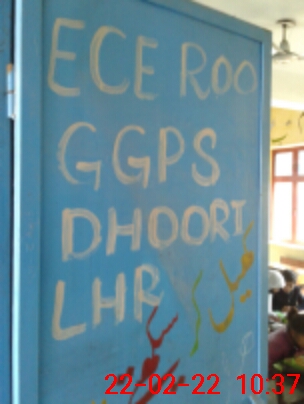 ECE ROO
GGPS
DHOORI
LHR
22-02-22 10:37